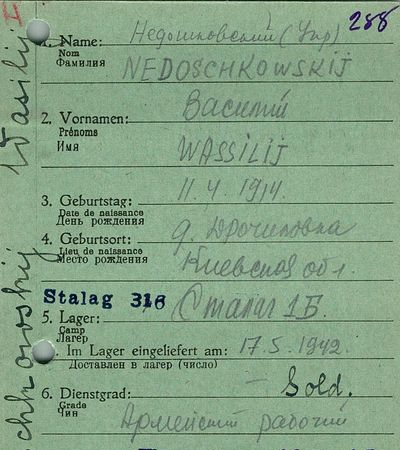 288
1. Name: Недошковский (Укр)
Nom
Фамилия NEDOSCHKOWSKIJ
Василий
2. Vornamen:
Prénoms
Имя WASSILIJ
3. Geburtstag: 11.4.1914.
Date de naissance
День рождения
4. Geburtsort: д.
Lieu de naissance
Место рождения Киевская обл.
Stalag 316 Сталаг 1Б.
5. Lager:
Camp
Лагерь
Im Lager eingeliefert am: 17.5.1942.
Доставлен в лагерь (число)
6. Dienstgrad: — Sold.
Grade
Чин Армейский рабочий
Wasilij